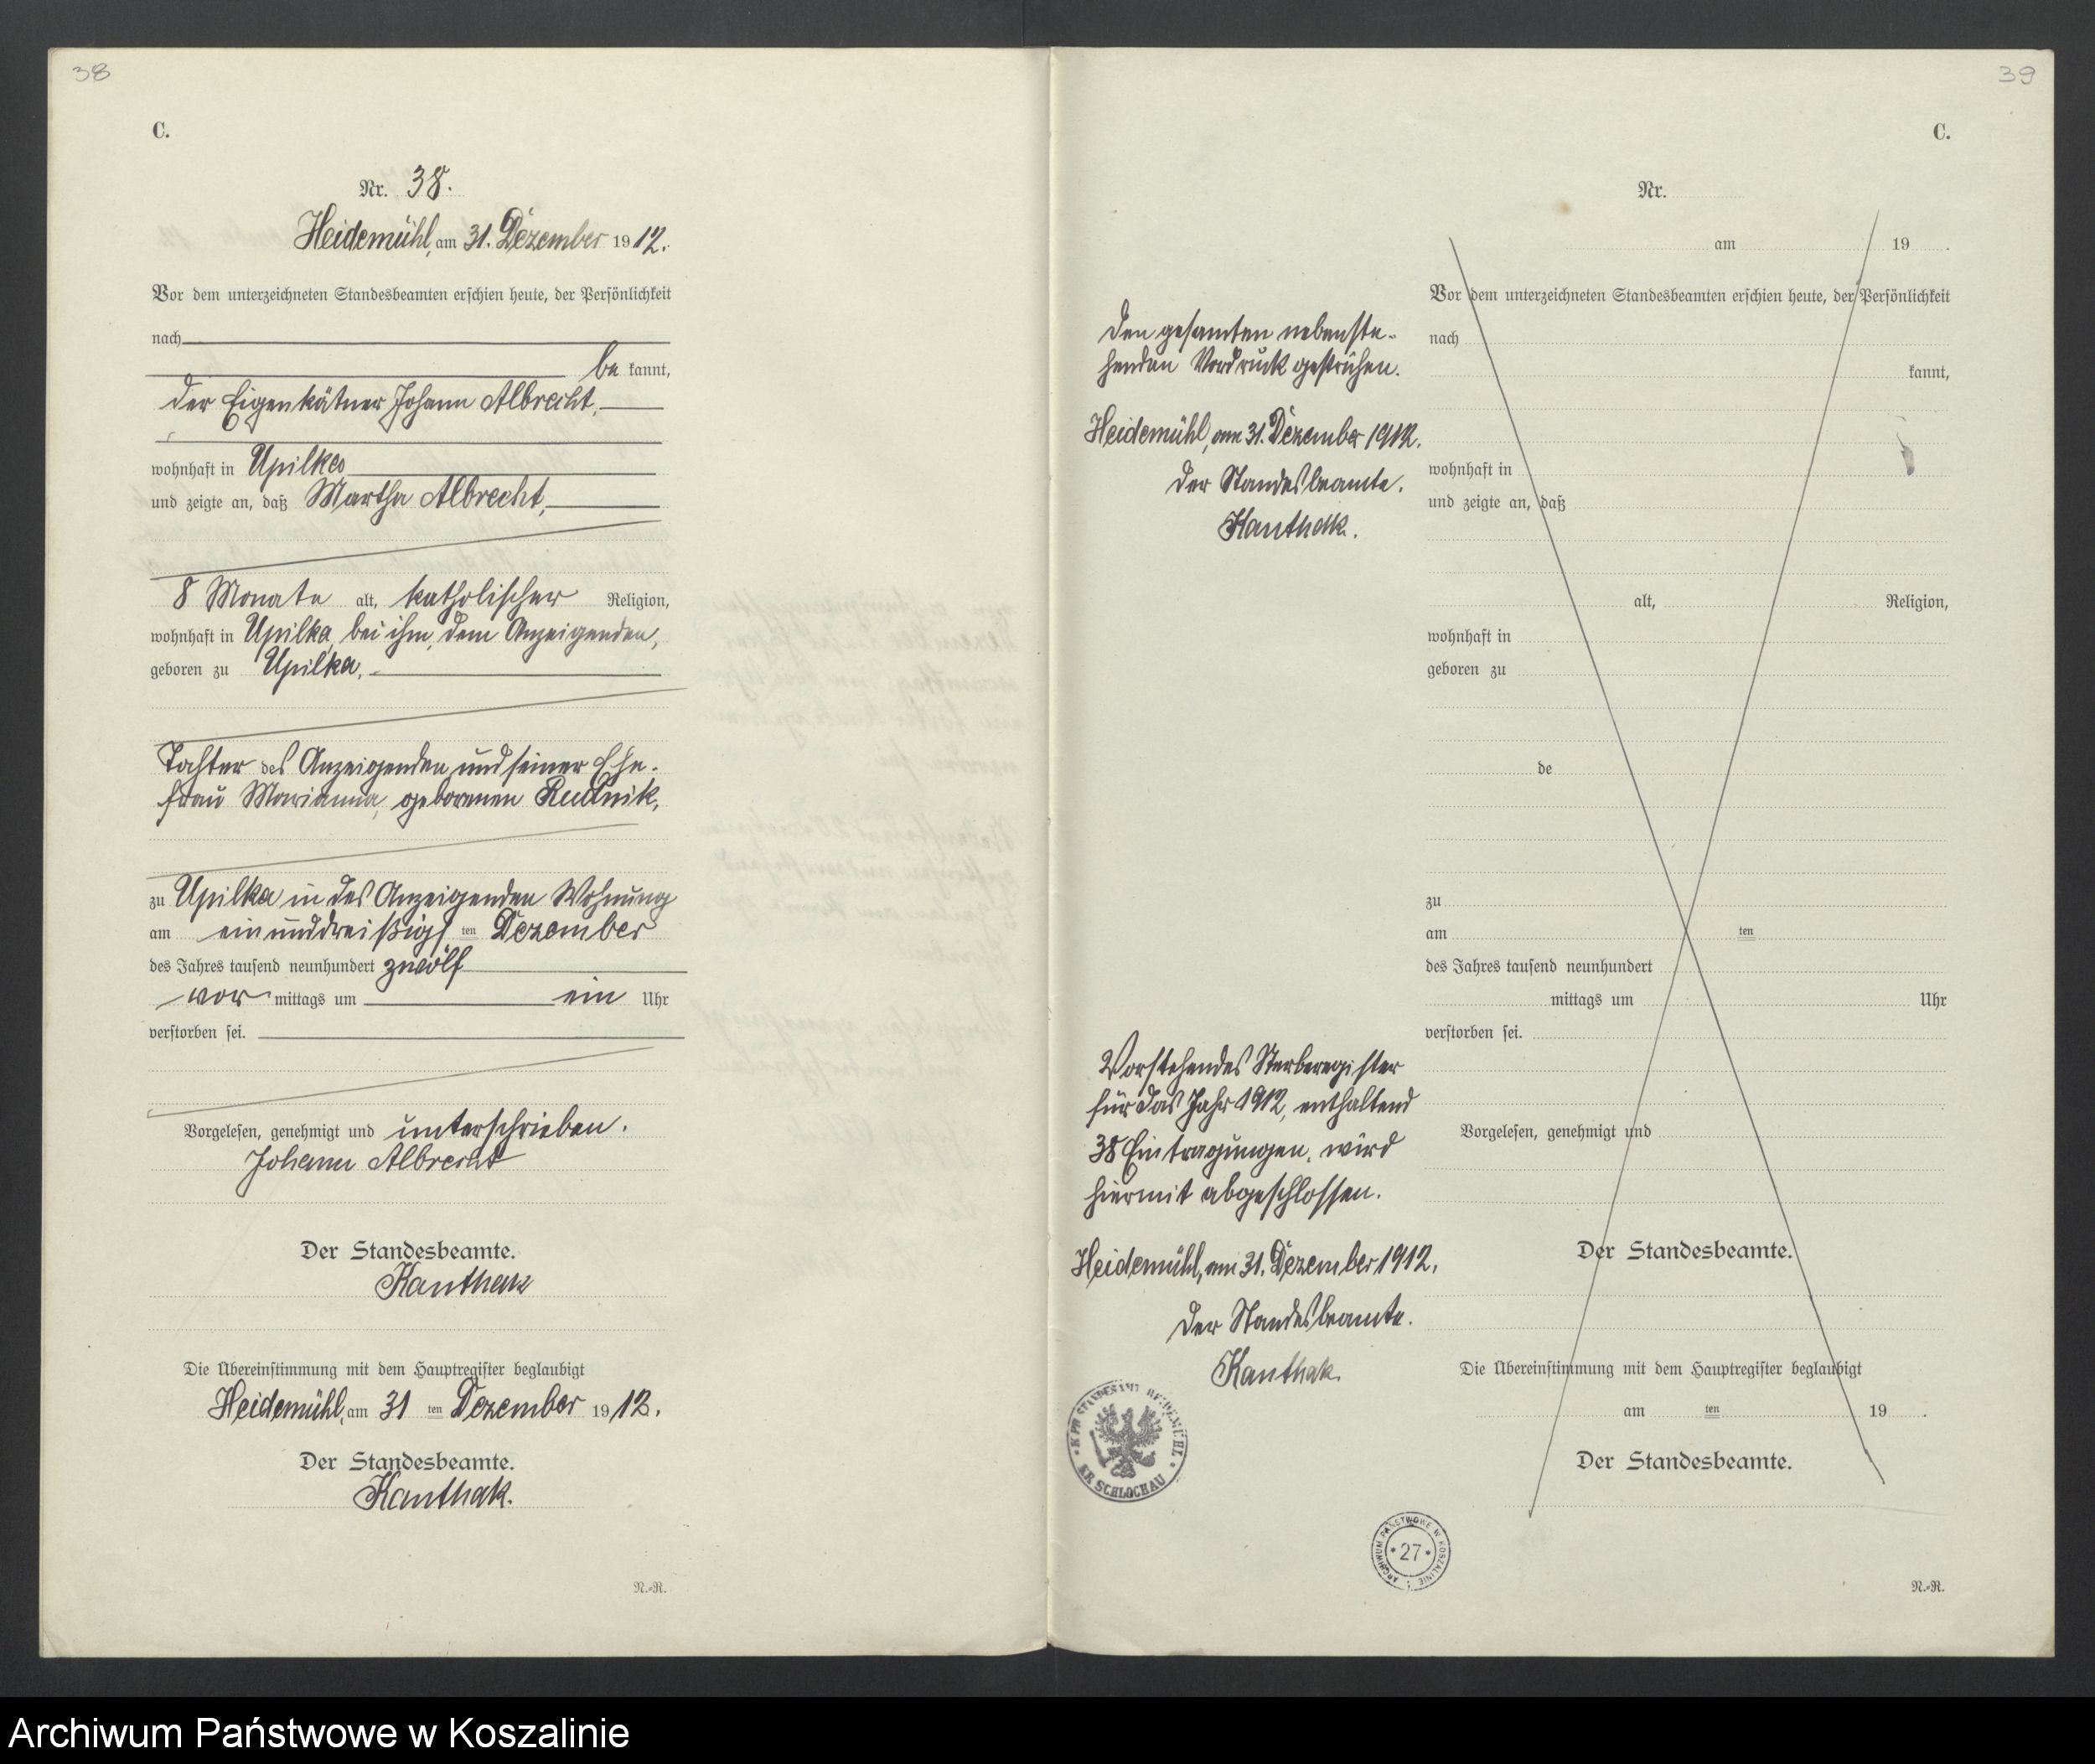 38
C.
Nr. 38.
Heidemühl, am 31. Dezember 1912.
Vor dem unterzeichneten Standesbeamten erschien heute, der Persönlichkeit
nach
be kannt,
der Eigenkätner Johann Albrecht,
wohnhaft in Upilka
und zeigte an, daß Martha Albrecht,
8 Monate alt, katholischer Religion,
wohnhaft in Upilka, bei ihm, dem Anzeigenden,
geboren zu Upilka,
Tochter des Anzeigenden und seiner Ehe-
frau Marianna, geborenen Rudnik,
zu Upilka in des Anzeigenden Wohnung
am einunddreißigsten Dezember
des Jahres tausend neunhundert zwölf
vor mittags um ein Uhr
verstorben sei.
Vorgelesen, genehmigt und unterschrieben.
Johann Albrecht
Der Standesbeamte.
Kanthak
Die Übereinstimmung mit dem Hauptregister beglaubigt
Heidemühl, am 31 ten Dezember 1912.
Der Standesbeamte.
Kanthak.
N.-R.
39
C.
Den gesamten nebenste-
henden Vordruck gestrichen.
Heidemühl, am 31. Dezember 1912.
Der Standesbeamte.
Kanthak.
Vorstehendes Sterberegister
für das Jahr 1912, enthaltend
38 Eintragungen, wird
hiermit abgeschlossen.
Heidemühl, am 31. Dezember 1912.
Der Standesbeamte.
Kanthak.
K. PR. STANDESAMT HEIDEMÜHL
KR. SCHLOCHAU
Nr.
am 19 .
Vor dem unterzeichneten Standesbeamten erschien heute, der Persönlichkeit
nach
kannt,
wohnhaft in
und zeigte an, daß
alt, Religion,
wohnhaft in
geboren zu
de
zu
am ten
des Jahres tausend neunhundert
mittags um Uhr
verstorben sei.
Vorgelesen, genehmigt und
Der Standesbeamte.
Die Übereinstimmung mit dem Hauptregister beglaubigt
am ten 19 .
Der Standesbeamte.
ARCHIWUM PAŃSTWOWE W KOSZALINIE
* 27 *
N.-R.
Archiwum Państwowe w Koszalinie